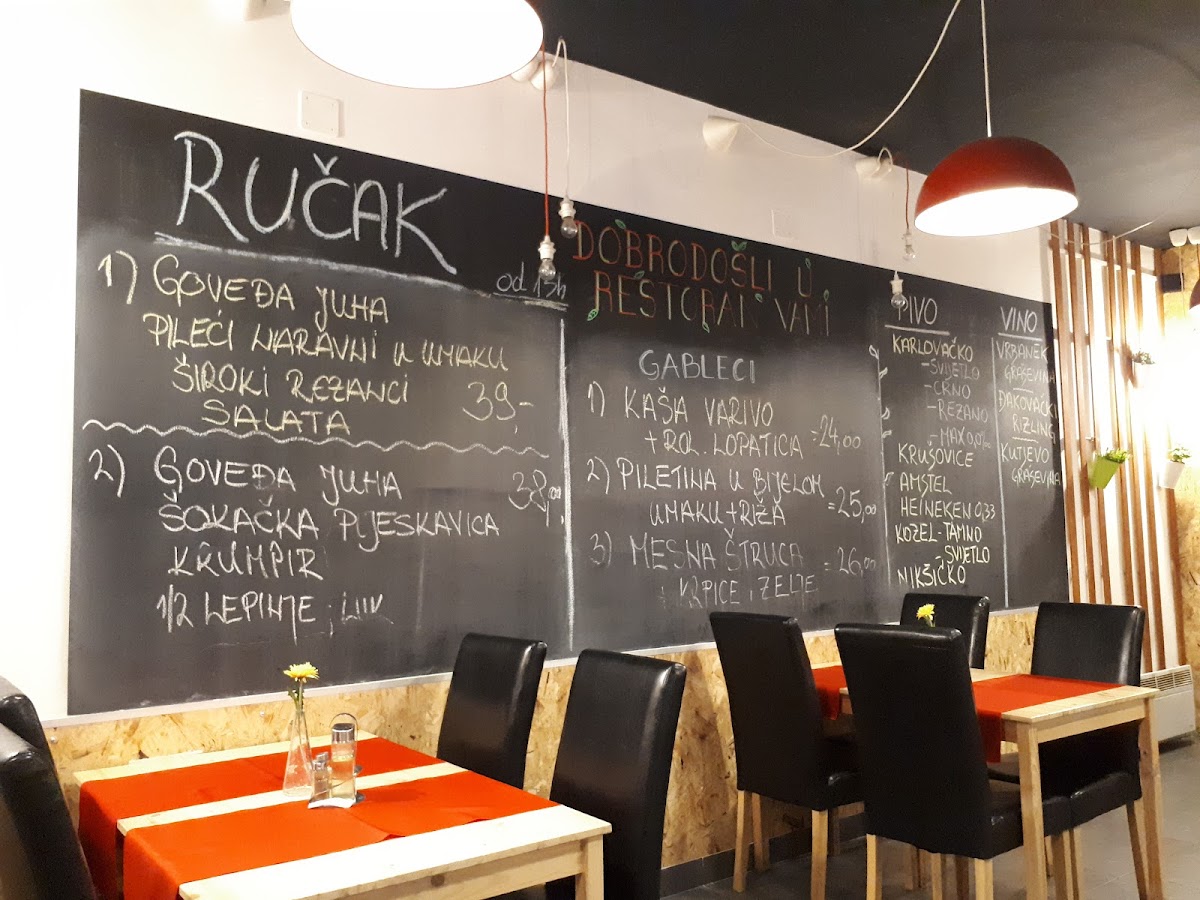 RUČAK
od 13h
1) GOVEĐA JUHA
PILEĆI NARAVNI U UMAKU
ŠIROKI REZANCI 39,-
SALATA
2) GOVEĐA JUHA 38,00
ŠOKAČKA PLJESKAVICA
KRUMPIR
1/2 LEPINJE;
DOBRODOŠLI U
RESTORAN VAMI
GABLECI
1) KAŠA VARIVO
+ ROL. LOPATICA =24,00
2) PILETINA U BIJELOM
UMAKU + RIŽA =25,00
3) MESNA ŠTRUCA = 26,00
+ KRPICE, ZELJE
PIVO
KARLOVAČKO
-SVIJETLO
-CRNO
-REZANO
-MAX 0,0%
KRUŠOVICE
AMSTEL
HEINEKEN 0,33
KOZEL-TAMNO
-SVIJETLO
NIKŠIČKO
VINO
VRBANEK
GRAŠEVINA
ĐAKOVAČKI
RIZLING
KUTJEVO
GRAŠEVINA